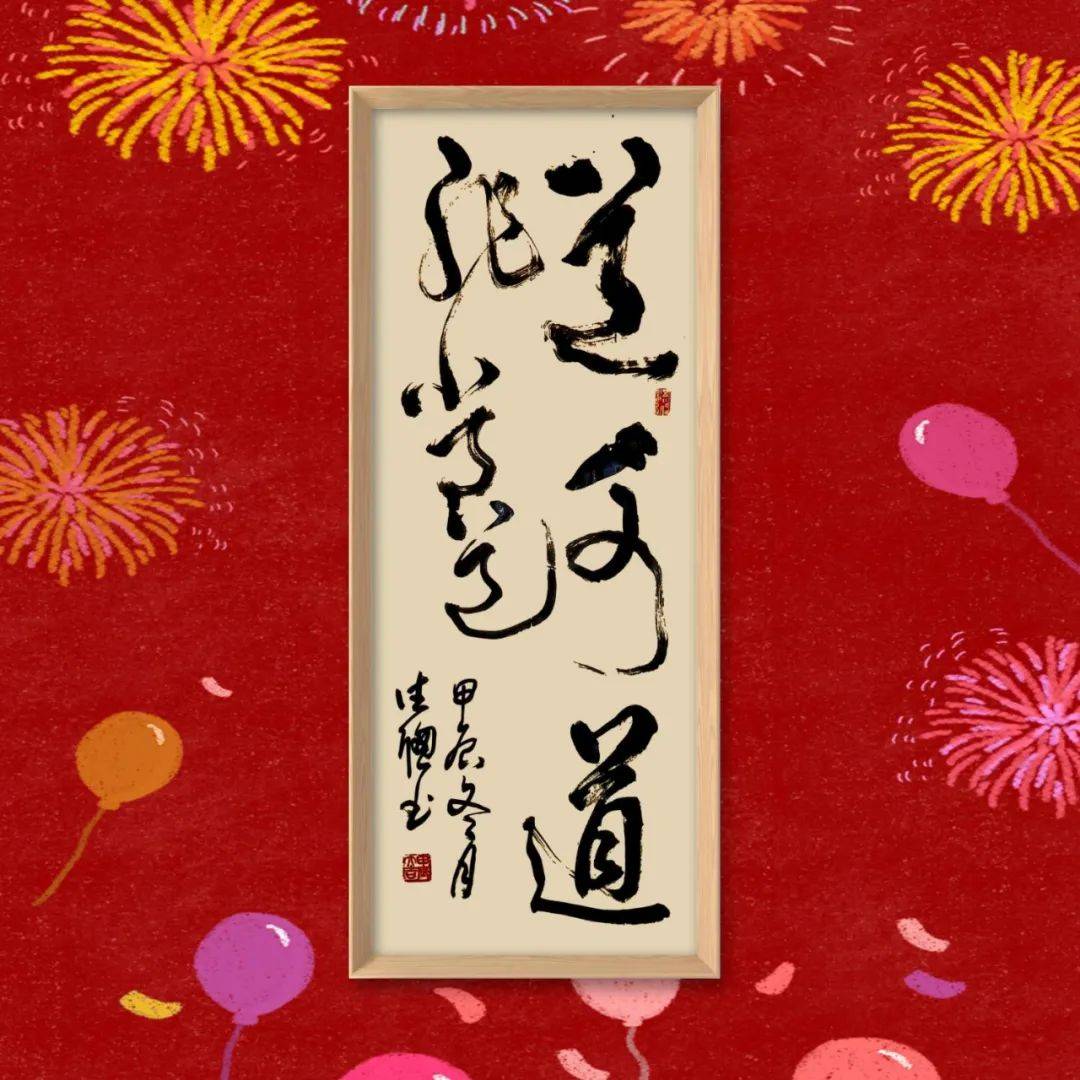 道可道
非常道
甲辰冬月
书